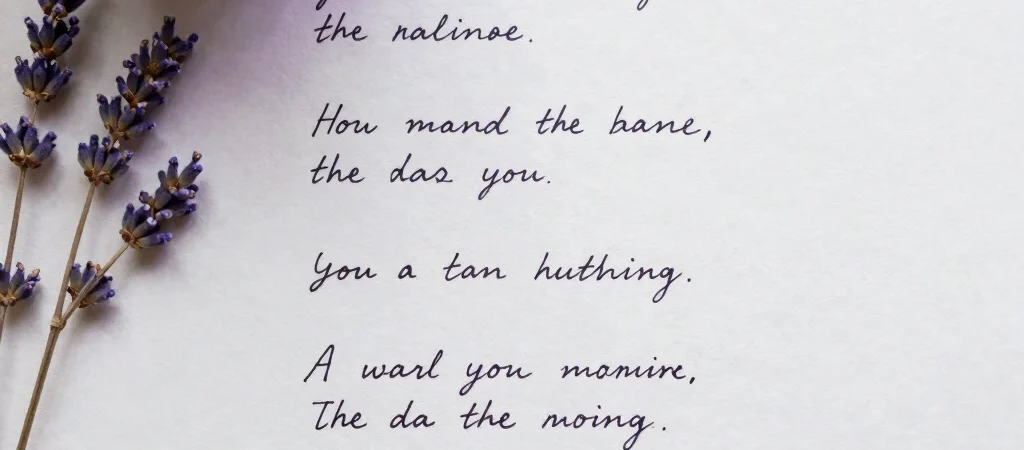 the nalinoe.
Hou mand the bane,
the daz you.
You a tan huthing.
A warl you momire,
The da the moing.